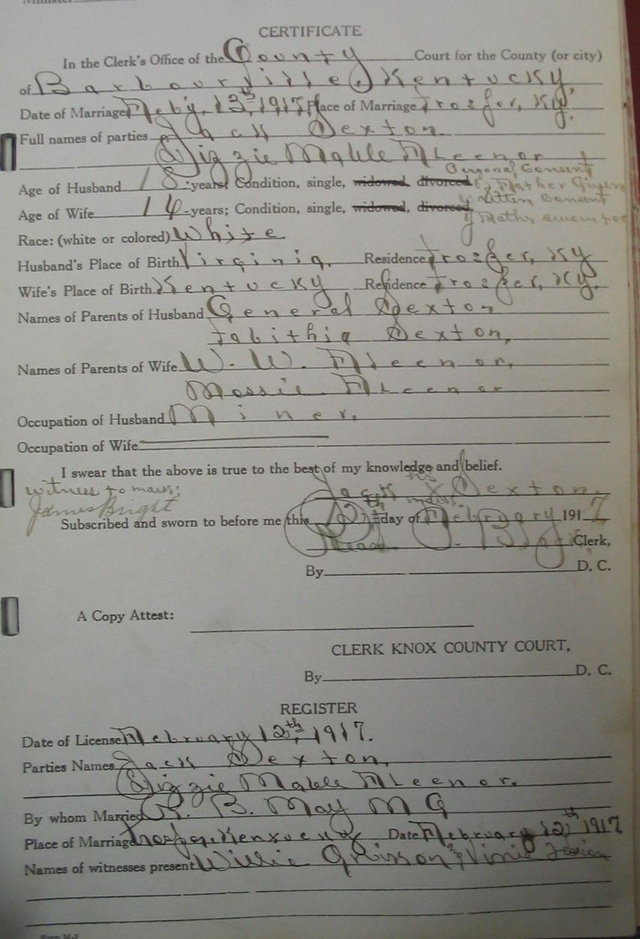 CERTIFICATE
In the Clerk's Office of the County Court for the County (or city)
of Barbourville, Kentucky
Date of Marriage Feb'y, 13th, 1917, Place of Marriage Trosper, Ky.
Full names of parties Jack Sexton
Lizzie Mable Fleenor
Age of Husband 18 years; Condition, single, widowed, divorced Personal Consent
of Father Given
Age of Wife 14 years; Condition, single, widowed, divorced written Consent
of
Race: (white or colored) White
Husband's Place of Birth Virginia, Residence Trosper, Ky
Wife's Place of Birth Kentucky Residence Trosper, Ky.
Names of Parents of Husband General Sexton
Tabithia Sexton,
Names of Parents of Wife W. W. Fleenor,
Mossie Fleenor
Occupation of Husband Miner,
Occupation of Wife
I swear that the above is true to the best of my knowledge and belief.
witness to mark: Jack his X mark Sexton,
James Bright
Subscribed and sworn to before me this 12th day of February 1917
Clerk,
By D. C.
A Copy Attest:
CLERK KNOX COUNTY COURT,
By D. C.
REGISTER
Date of License February 12th, 1917.
Parties Names Jack Sexton,
Lizzie Mable Fleenor.
By whom Married R. B. May M G
Place of Marriage Trosper, Kentucky Date February 12th 1917
Names of witnesses present Willie Grisson &